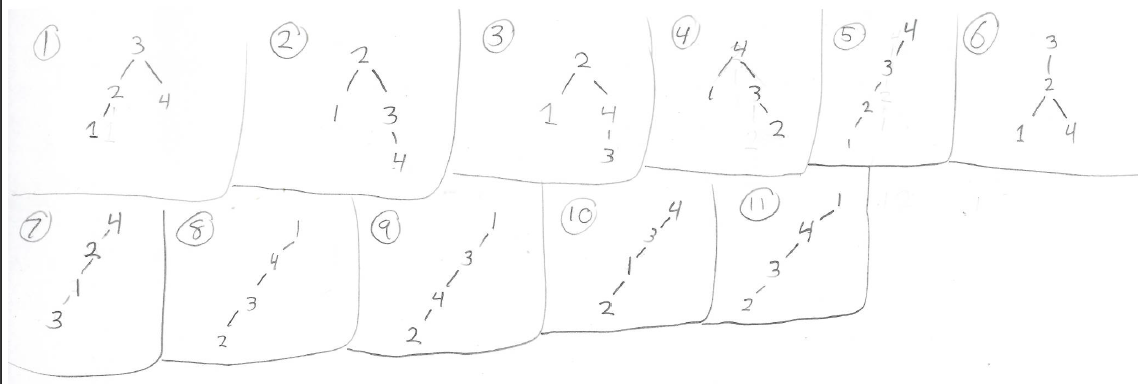 ① 3
2 4
1
② 2
1 3
4
③ 2
1 4
3
④ 4
1 3
2
⑤ 4
3
2
1
⑥ 3
2
1 4
⑦ 4
2
1
3
⑧ 1
4
3
2
⑨ 1
3
4
2
⑩ 4
3
1
2
⑪ 1
4
3
2